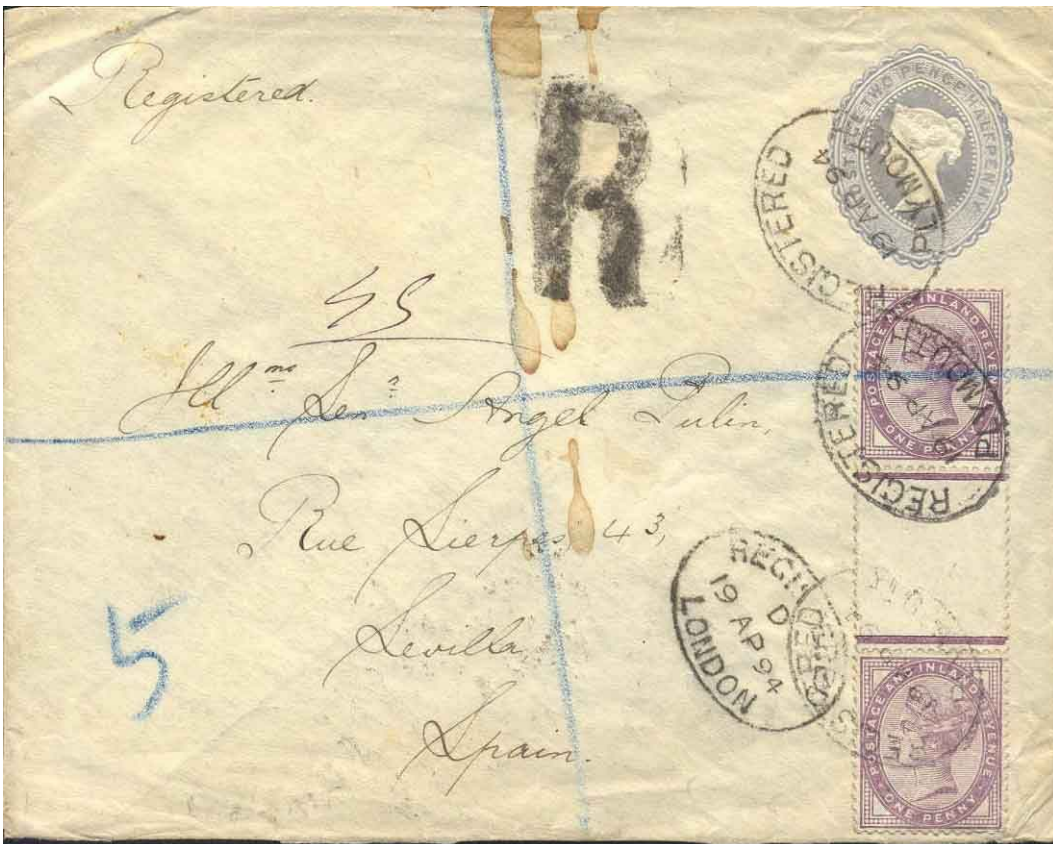 Registered.
R
POSTAGE TWO PENCE HALFPENNY
REGISTERED
19 AP 94
PLYMOUTH
45
Illmo Senr Angel Pulin,
Rue Sierpes 43,
Sevilla
Spain.
5
POSTAGE AND INLAND REVENUE
ONE PENNY
REGISTERED
19 AP 94
PLYMOUTH
REGD
D
19 AP 94
LONDON
POSTAGE AND INLAND REVENUE
ONE PENNY